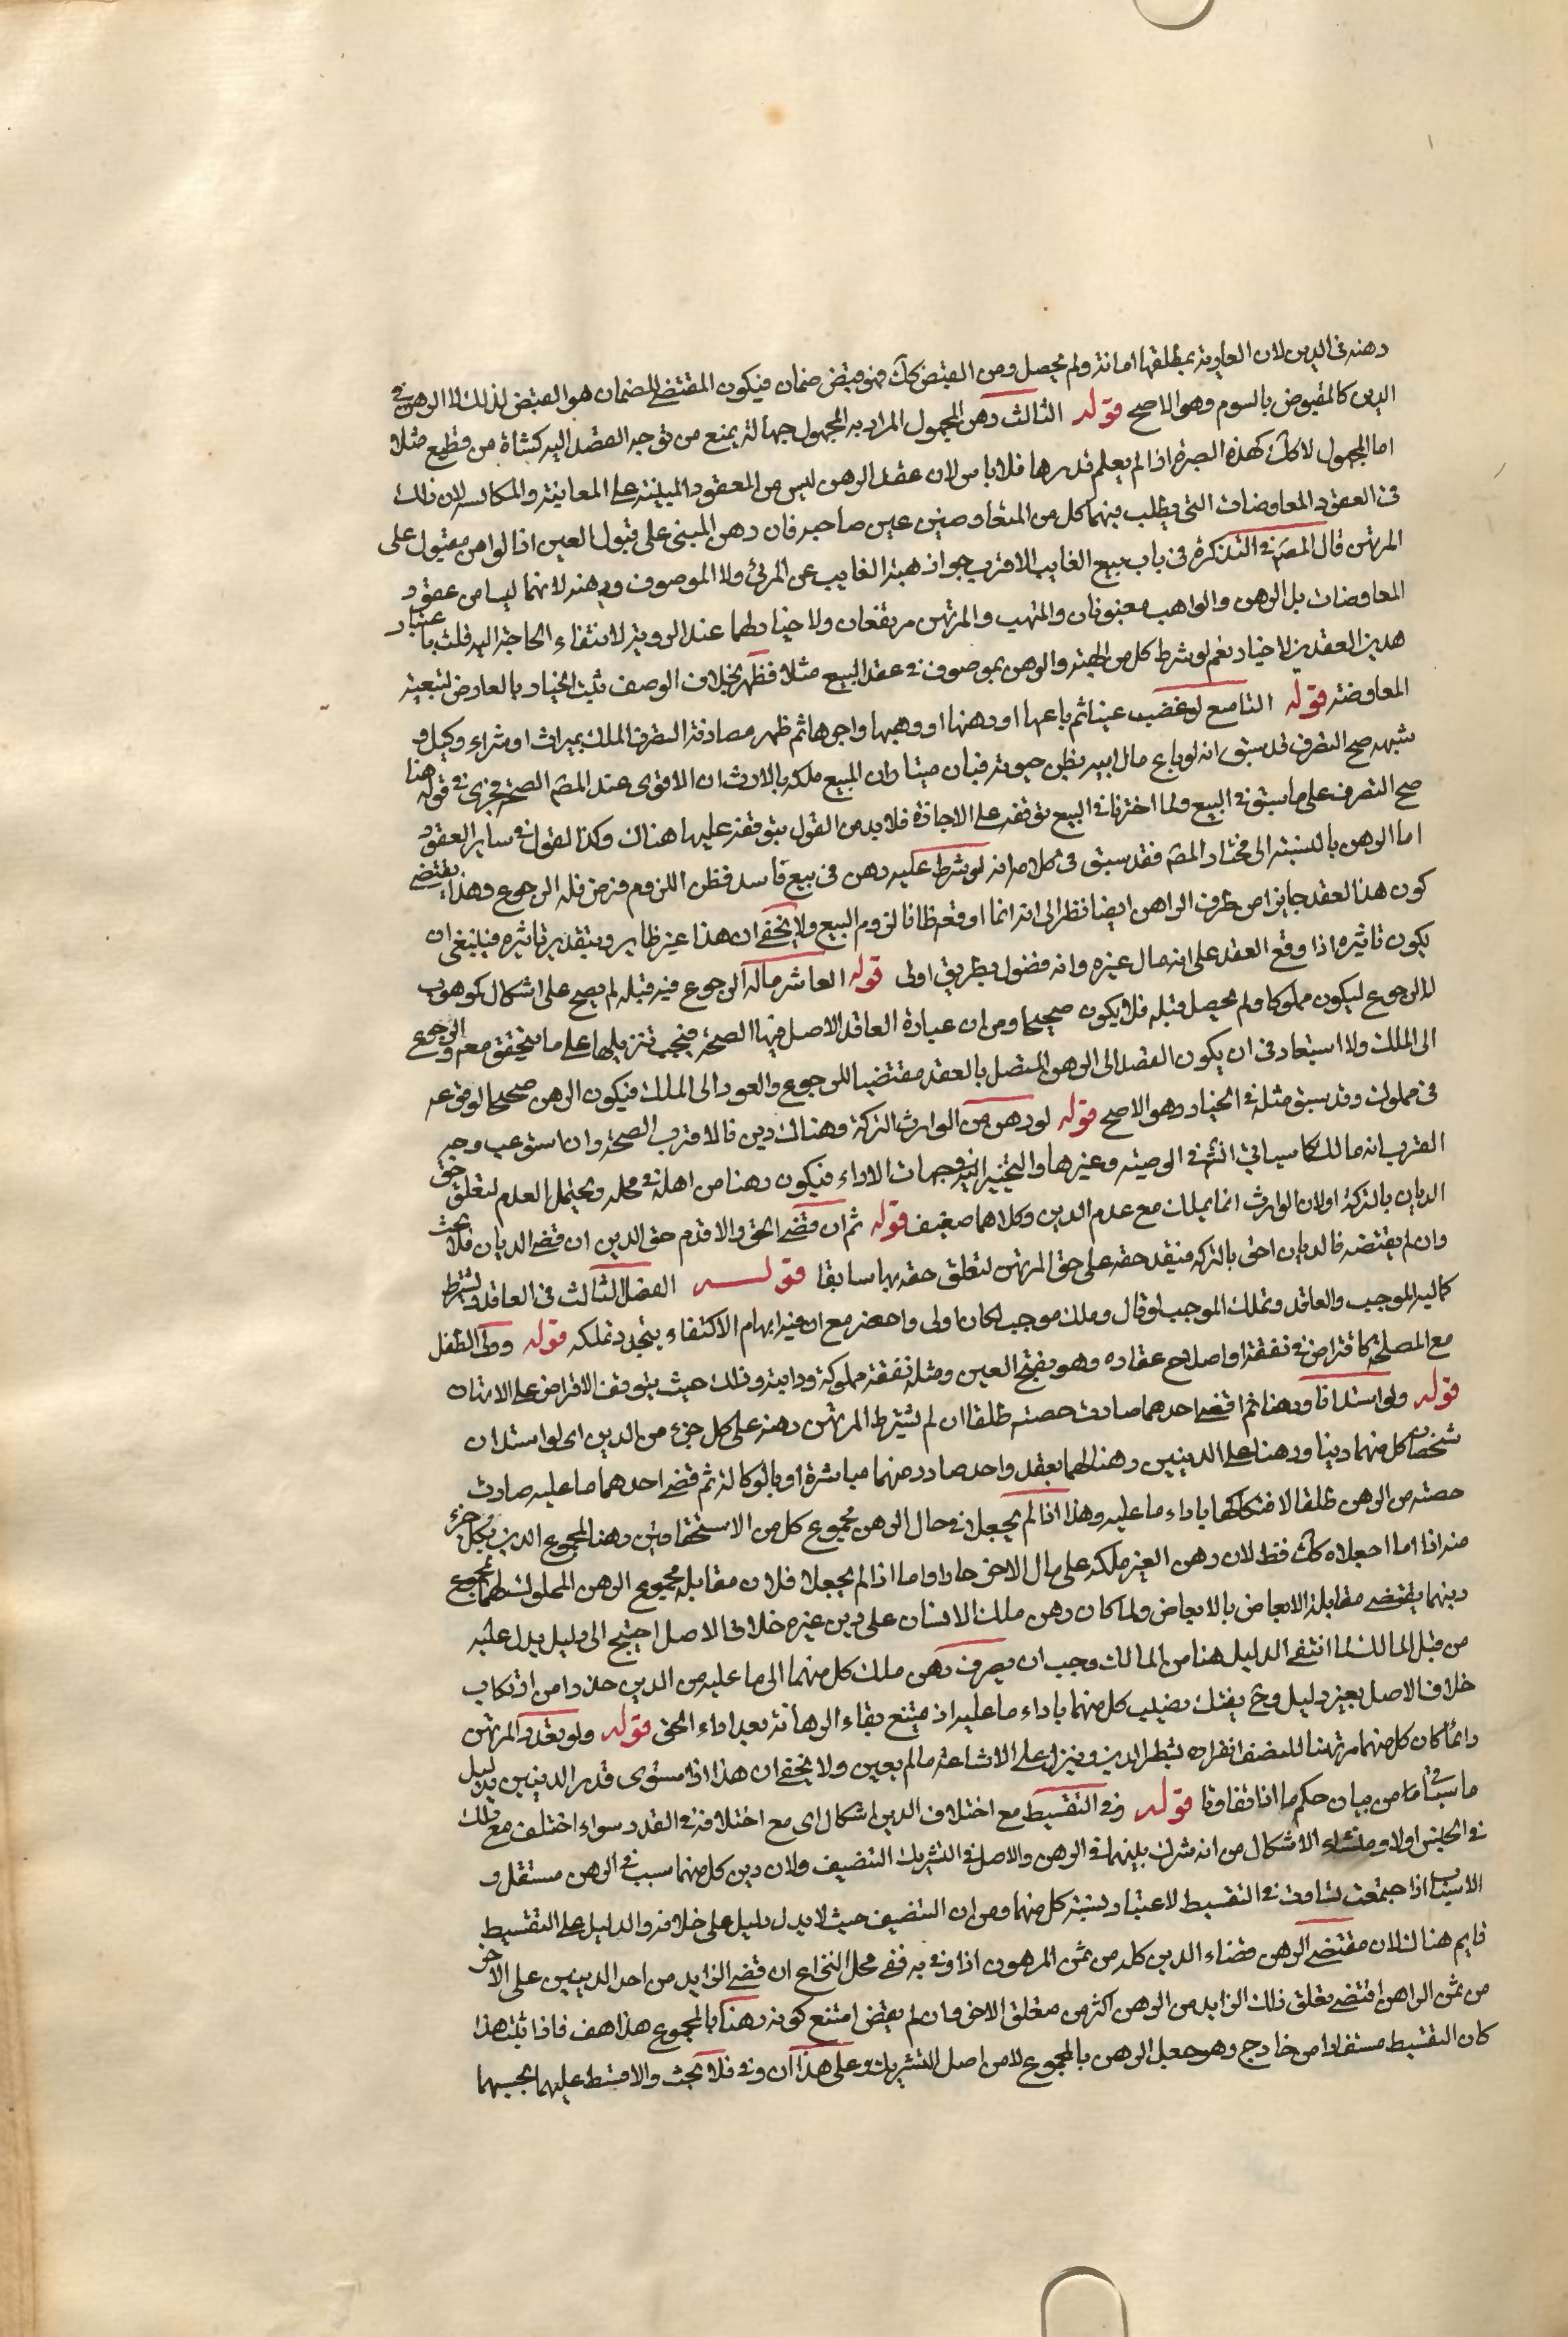 رهنه في الدين لان العارية بمطلقها امانة ولم يحصل ومن القبض كك فهو قبض ضمان فيكون المقتضي للضمان هو القبض لذلك لا الرهن في
الدين كالمقبوض بالسوم وهو الاصح قوله الثالث رهن المجهول المراد به المجهول جهالة يمنع من توجه القصد اليه كشاة من قطيع مثلا
اما المجهول لا كك كهذه الصبرة اذا لم يعلم قدرها فلا باس لان عقد الرهن ليس من العقود المبينة على المعاينة والمكايسه لان ذلك
في العقود المعاوضات التي يطلب فيهما كل من المتعاوضين عين صاحبه فان رهن المبني على قبول العين اذا لوا من مقبول على
المرتهن قال المصّ في التذكرة في باب بيع الغايب الاقرب جواز هبة الغايب عن المرئي ولا الموصوف ورهنه لانهما ليسا من عقود
المعاوضات بل الرهن والواهب مغبونان والمتهب والمرتهن مرتفعان ولا خيار لهما عند الروية لانتفاء الحاجة اليه قلت باعتبار
هذين العقدين لا خيار نعم لو شرط كل من الهبة والرهن بموصوف في عقد البيع مثلا فظهر بخلاف الوصف ثبت الخيار بالعارض لتبعية
المعاوضة قوله التاسع لو غصب عينا ثم باعها او رهنها او وهبها واجرها ثم ظهر مصادفة التصرف الملك بميراث او شراء وكيل و
شبهه صح التصرف قد سبق انه لو باع مال ابيه بظن حيوته فبان ميتا وان المبيع ملكه بالارث ان الاقوى عند المصّ الصحة فجرى في قوله هنا
صح التصرف على ما سبق في البيع ولما اخترنا في البيع توقفه على الاجازة فلا بد من القول بتوقفه عليها هناك وكذا القول في ساير العقود
اما الرهن بالنسبة الى مختار المصّ فقد سبق في كلامه انه لو شرط عليه رهن في بيع فاسد فظن اللزوم فرهن فله الرجوع وهذا يقتضي
كون هذا العقد جايزا من طرف الراهن ايضا نظرا الى انه انما اوقعه ظانا لزوم البيع ولا يخفى ان هذا غير ظاهر وبتقدير تاثيره فينبغي ان
يكون تاثيره اذا وقع العقد على انه مال غيره وانه فضول بطريق اولى قوله العاشر ماله الرجوع فيه قبله لم يصح على اشكال كموهوب
للرجوع ليكون مملوكا ولم يحصل قبله فلا يكون صحيحا ومن ان عبارة العاقد الاصل فيها الصحة فيجب تنزيلها على ما يتحقق معه والرجوع
الى الملك ولا استبعاد في ان يكون القصد الى الرهن المتصل بالعقد مقتضيا للرجوع والعود الى الملك فيكون الرهن صحيحا لوقوعه
في مملوك وقد سبق مثله في الخيار وهو الاصح قوله لو رهن من الوارث التركة وهناك دين فالاقرب الصحة وان استوعب وجه
القرب انه مالك كما سياتي انش في الوصيه وغيرها والتخيير اليه في وجهات الاداء فيكون رهنا من اهله في محله ويحتمل العدم لتعلق حق
الديان بالتركة اولان الوارث انما يملك مع عدم الدين وكلاهما ضعيف قوله ثم ان قضى الحق والا قدم حق الدين ان قضى الديان فلا بحث
وان لم يقتضه فالديان احق بالتركه فيقدم حقه على حق المرتهن لتعلق حقه بها سابقا قولـــه الفصل الثالث في العاقد ويشترط
كمالية الموجب والعاقد وتملك الموجب لو قال وملك موجب لكان اولى واحصر مع ان فيه ايهام الاكتفاء بتجدد تملكه قوله وولي الطفل
مع المصلحة كاقتراض في نفقته او اصلاح عقاره وهو بفتح العين ومثله نفقته مملوكه ودابته وذلك حيث يتوقف الاقراض على الارتهان
قوله ولو استدانا ورهنا ثم اقضى احدهما صارت حصته طلقا ان لم يشترط المرتهن رهنه على كل جزء من الدين اى لو استدان
شخصان كل منهما دينا ورهنا على الدينين رهنا لهما بعقد واحد صادر منهما مباشرة او بالوكالة ثم قضى احدهما ما عليه صارت
حصته من الرهن طلقا لافتكاكها باداء ما عليه وهذا اذا لم يجعل في حال الرهن مجموع كل من الاستحقاقين رهنا لمجموع الدين بكل جزء
منه اذا اما اجعلاه كك فقط لان رهن الغير ملكه على مال الاخر جاز واما اذا لم يجعلا فلان مقابله مجموع الرهن المملوك لهما بمجموع
دينهما يقتضي مقابلة الابعاض بالابعاض ولما كان رهن ملك الانسان على دين غيره خلاف الاصل احتيج الى دليل يدل عليه
من قبل المالك لما انتفى الدليل هنا من المالك وجب ان يصرف رهن ملك كل منهما الى ما عليه من الدين حذرا من ارتكاب
خلاف الاصل بغير دليل وح يفتك نصيب كل منهما باداء ما عليه اذ يمتنع بقاء الرهانة بعد اداء الحق قوله ولو تعدد المرتهن
دائما كان كل منهما مرتهنا للنصف انفراده بشطر الدين وينزل على الاشاعة مالم يعين ولا يخفى ان هذا اذا استوى قدر الدينين بدليل
ما سياتي من بيان حكم ما اذا تفاوتا قوله وفي التقسيط مع اختلاف الدين اشكال اى مع اختلافه في القدر سواء اختلف مع ذلك
في الجنس اولا ومنشاء الاشكال من انه شرك بينهما في الرهن والاصل في التشريك التنصيف ولان دين كل منهما سبب في الرهن مستقل و
الاسباب اذا اجتمعت تساوت في التقسيط لاعتبار نسبة كل منهما ومن ان التنصيف حيث لا يدل دليل على خلافه والدليل على التقسيط
قايم هنا لذلان مقتضى الرهن قضاء الدين كله من ثمن المرهون اذا وفى به ففي محل النزاع ان قضى الزايد من احد الدينين على الاخر
من ثمن الراهن اقتضى تعلق ذلك الزايد من الرهن اكثر من متعلق الاخر وان لم يقض امتنع كونه رهنا بالمجموع هذا هف فاذا ثبت هذا
كان التقسيط مستفادا من خارج وهو جعل الرهن بالمجموع لا من اصل التشريك وعلى هذا ان وفى فلا بحث والا قسط عليهما بحسبهما